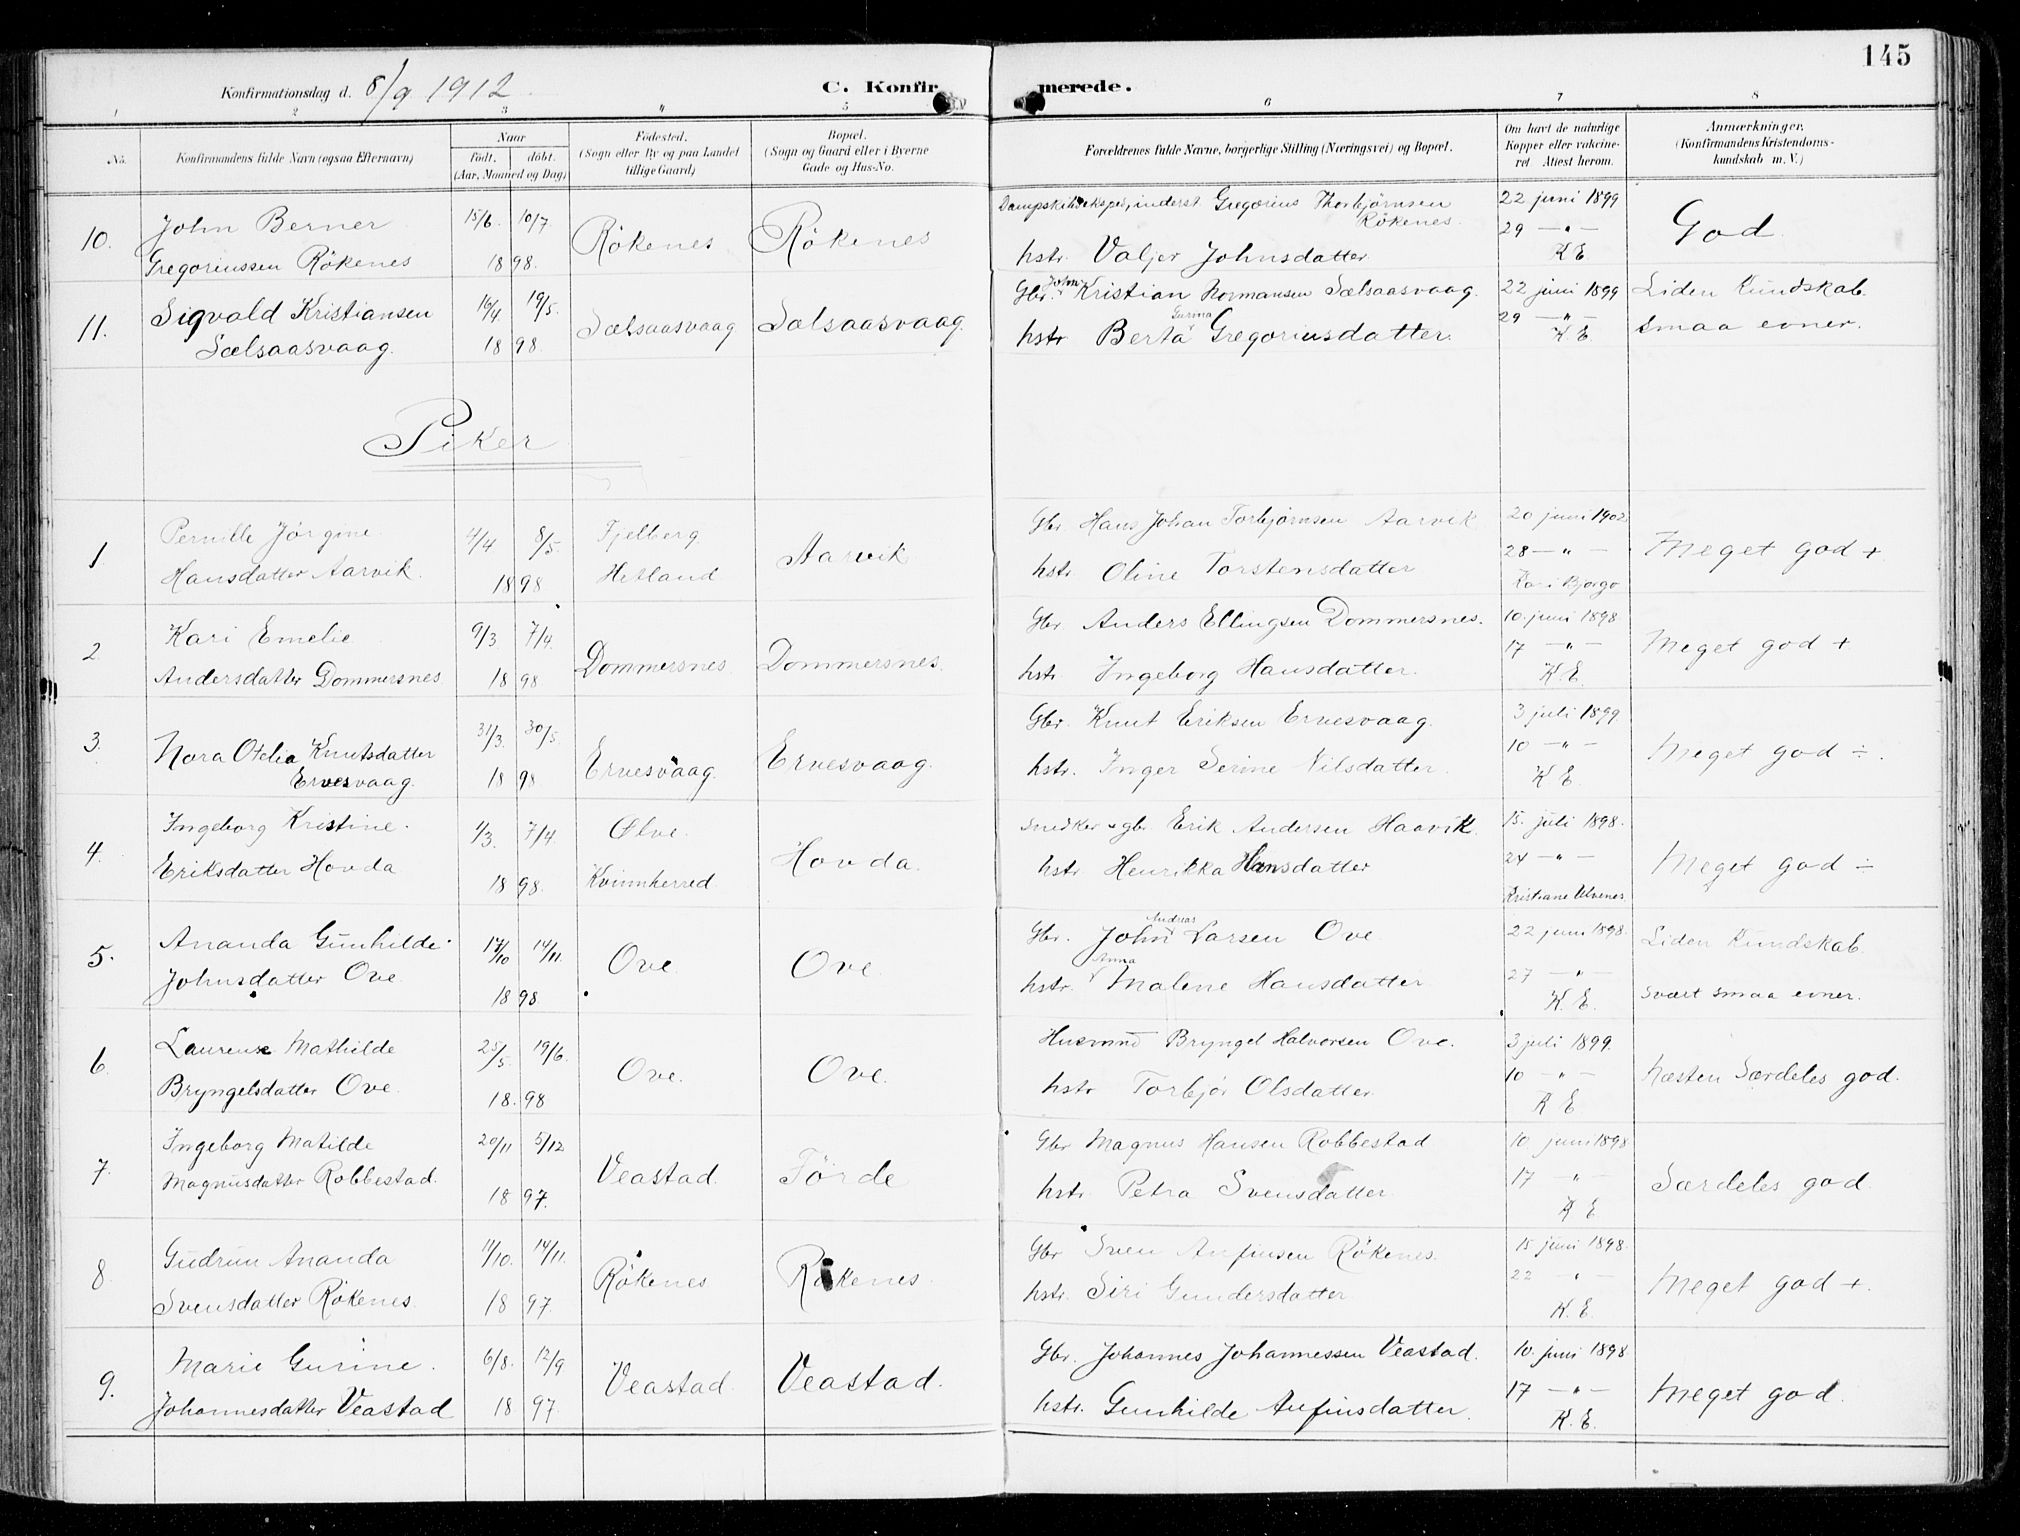 145
Konfirmationsdag d. 8/9 1912
C. Konfirmerede.
1 2 3 4 5 6 7 8
No.
Konfirmandens fulde Navn (ogsaa Efternavn)
Naar
født. døbt.
(Aar, Maaned og Dag)
Fødested.
(Sogn eller By og paa Landet
tillige Gaard)
Bopæl.
(Sogn og Gaard eller i Byerne
Gade og Hus-No.
Forældrenes fulde Navne, borgerlige Stilling (Næringsvei) og Bopæl.
Om havt de naturlige
Kopper eller vakcine-
ret. Attest herom.
Anmærkninger.
(Konfirmandens Kristendoms-
kundskab m. V.)
10. John Berner 15/6. 10/7 Rökenes Rökenes Gregorius Thorbjørnsen 22 juni 1899 God
Rökenes.
Gregoriussen Rökenes 1898. hstr. Valjer Johnsdatter 29 — " — K E
11. Sigvald Kristiansen 16/4 19/5. Sælsaasvaag Sælsaasvaag Gbr. John Kristian Normansen Sælsaasvaag. 22 juni 1899 Liden Kundskab.
Sælsaasvaag. 1898. hstr Berta Gurina Gregoriusdatter. 29 — " — K E smaa evner.
Piker
1 Pernille Jørgine 4/4 8/5. Fjelberg Aarvik Gbr. Hans Johan Torbjørnsen Aarvik 20 juni 1902 Meget god +
Hansdatter Aarvik. 1898 Hetland hstr. Oline Torstensdatter 28 — " — Kari Bjorgo
2. Kari Emelie 9/3 7/4. Dommersnes. Dommersnes. Gbr. Anders Ellingsen Dommersnes. 10. juni 1898 Meget god +
Andersdatter Dommersnes 1898 hstr. Ingeborg Hansdatter. 17 — " — K. E.
3. Nora Otelia Knutsdatter 31/3. 30/5. Ervesvaag. Ervesvaag. Gbr. Knut Eriksen Ervesvaag. 3 juli 1899 Meget god ÷.
Ervesvaag. 1898 hstr. Inger Serine Nilsdatter. 10 — " — K E
4. Ingeborg Kristine. 1/3. 7/4 Ølve. Hovda. Snedker & gbr. Erik Andersen Haavik. 15. juli 1898. Meget god ÷
Eriksdatter Hovda 1898. Kvinnherred. hstr Henrikka Hansdatter 24 — " — Kristiane Ulvenes.
5. Ananda Gunhilde 17/10 14/11. Ove. Ove. Gbr. John Andreas Larsen Ove 22 juni 1898. Liden Kundskab.
Johnsdatter Ove. 1898 hstr. Anna Malene Hansdatter 27 — " — K. E. svært smaa evner.
6. Laurense Mathilde 25/5. 19/6. Ove. Ove. Husmand Bryngel Halvorsen Ove. 3 juli 1899. Næsten Særdeles god.
Bryngelsdatter Ove. 18.98 hstr Torbjør Olsdatter. 10 — " — K E.
7. Ingeborg Matilde 20/11 5/12 Veastad. Förde Gbr Magnus Hansen Robbestad 10 juni 1898 Særdeles god
Magnusdatter Robbestad. 1897. hstr. Petra Svensdatter. 17 — " — K E
8. Gudrun Ananda 11/10. 14/11. Rökenes Rökenes. Gbr Sven Anfinsen Rökenes. 15 juni 1898. Meget god +.
Svensdatter Rökenes. 1897. hstr. Siri Gundersdatter 22 — " — K. E.
9. Marie Gurine. 6/8. 12/9 Veastad. Veastad. Gbr. Johannes Johannessen Veastad. 10. juni 1898 Meget god.
Johannesdatter Veastad 1897. hstr. Gunhilde Anfinsdatter. 17 — " — K. E.